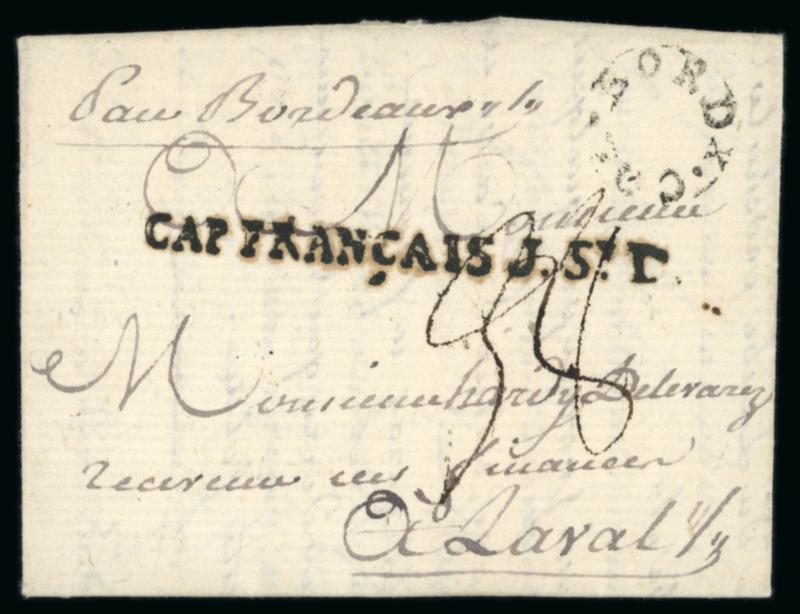 Par Bordeaux
BORDX.C
A Monsieur
CAP FRANÇAIS J. St. D
34
Monsieur hardy Delevarez
receveur des finances
A Laval